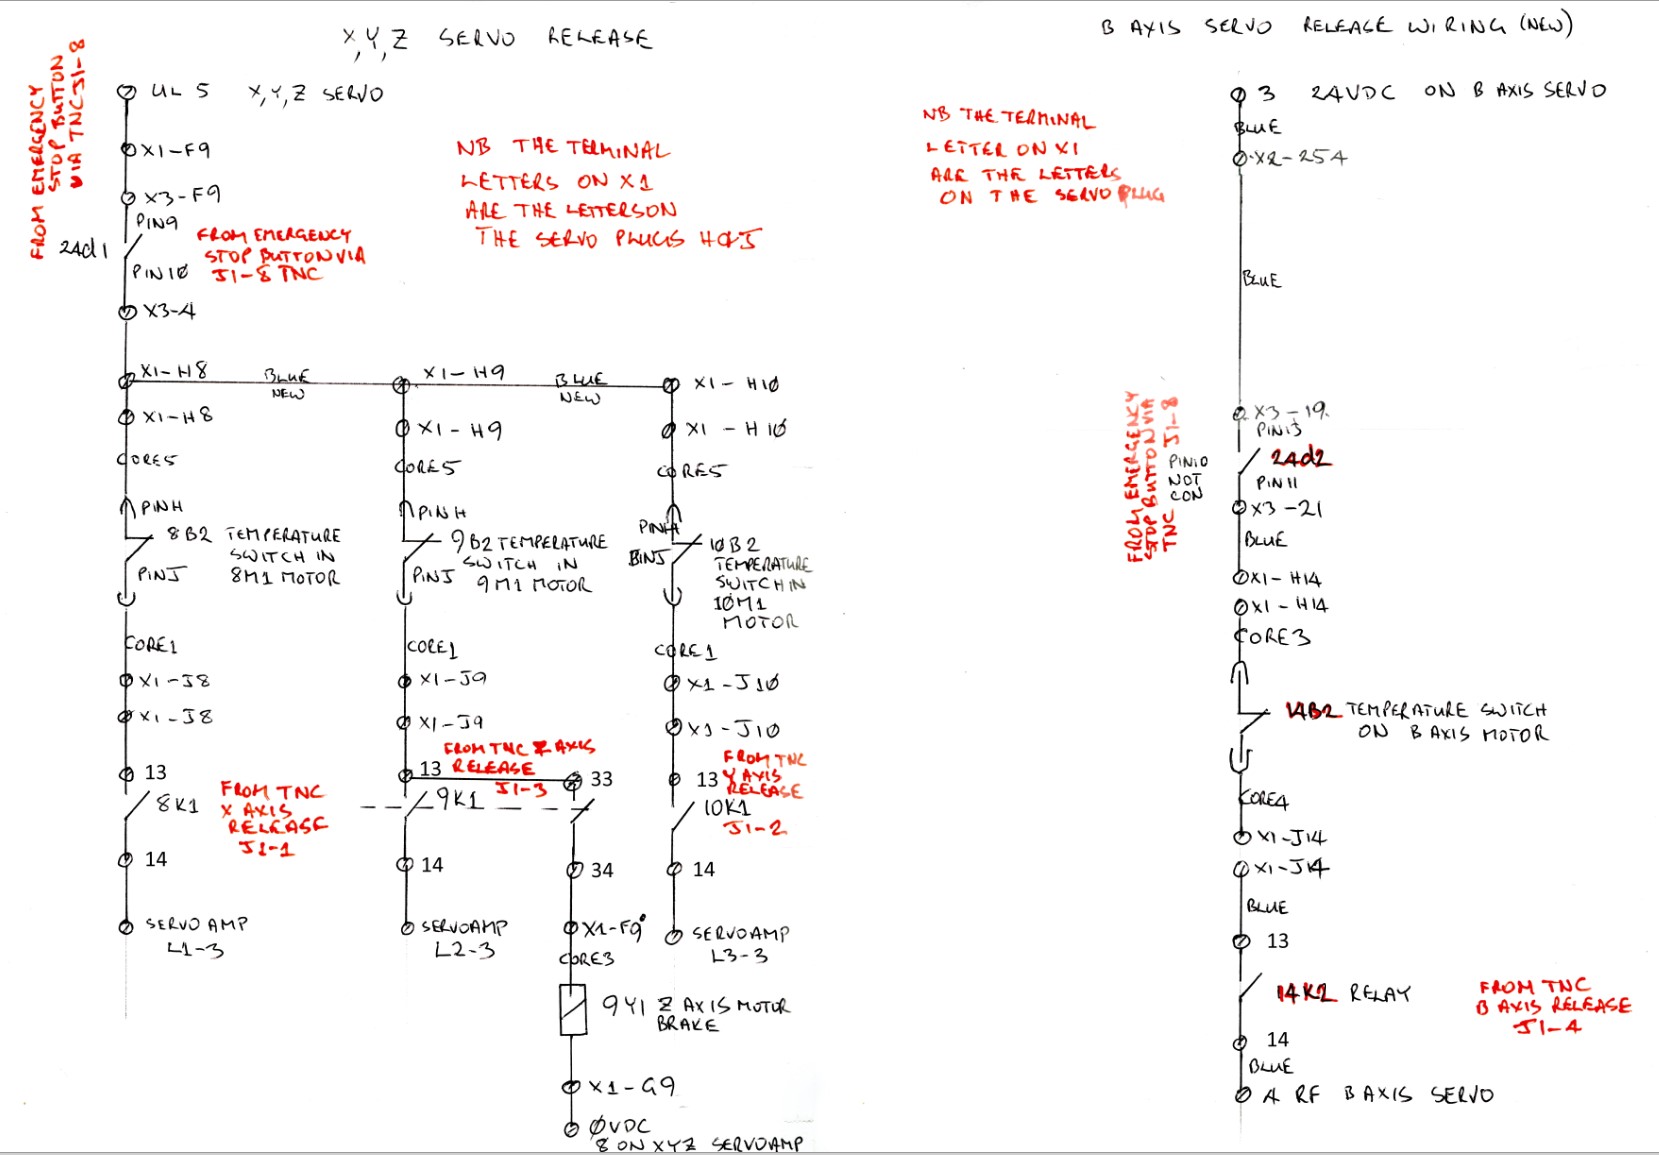 X,Y,Z SERVO RELEASE
FROM EMERGENCY
STOP BUTTON
VIA TNC J1-8
UL 5 X,Y,Z SERVO
X1-F9
X3-F9
PIN9
24d1
PIN10
X3-4
FROM EMERGENCY
STOP BUTTON VIA
J1-8 TNC
NB THE TERMINAL
LETTERS ON X1
ARE THE LETTERS ON
THE SERVO PLUGS H&J
X1-H8
BLUE
NEW
X1-H9
BLUE
NEW
X1-H10
X1-H8
CORE5
PINH
8B2 TEMPERATURE
SWITCH IN
8M1 MOTOR
PINJ
CORE1
X1-J8
X1-J8
13
8K1
FROM TNC
X AXIS
RELEASE
J1-1
14
SERVO AMP
L1-3
X1-H9
CORE5
PINH
9B2 TEMPERATURE
SWITCH IN
9M1 MOTOR
PINJ
CORE1
X1-J9
X1-J9
FROM TNC Z AXIS
RELEASE
J1-3
13
33
9K1
14
34
SERVOAMP
L2-3
X1-F9
CORE3
9Y1 Z AXIS MOTOR
BRAKE
X1-G9
0VDC
8 ON XYZ SERVOAMP
X1-H10
CORE5
PINH
10B2
TEMPERATURE
SWITCH IN
10M1
MOTOR
BINJ
CORE1
X1-J10
X1-J10
13
FROM TNC
Y AXIS
RELEASE
J1-2
10K1
14
SERVOAMP
L3-3
B AXIS SERVO RELEASE WIRING (NEW)
NB THE TERMINAL
LETTER ON X1
ARE THE LETTERS
ON THE SERVO PLUG
3 24VDC ON B AXIS SERVO
BLUE
X2-254
BLUE
FROM EMERGENCY
STOP BUTTON VIA
TNC J1-8
X3-19
PIN13
24d2
PIN10
NOT
CON
PIN11
X3-21
BLUE
X1-H14
X1-H14
CORE3
14B2 TEMPERATURE SWITCH
ON B AXIS MOTOR
CORE4
X1-J14
X1-J14
BLUE
13
14K2 RELAY
FROM TNC
B AXIS RELEASE
J1-4
14
BLUE
4 RF B AXIS SERVO